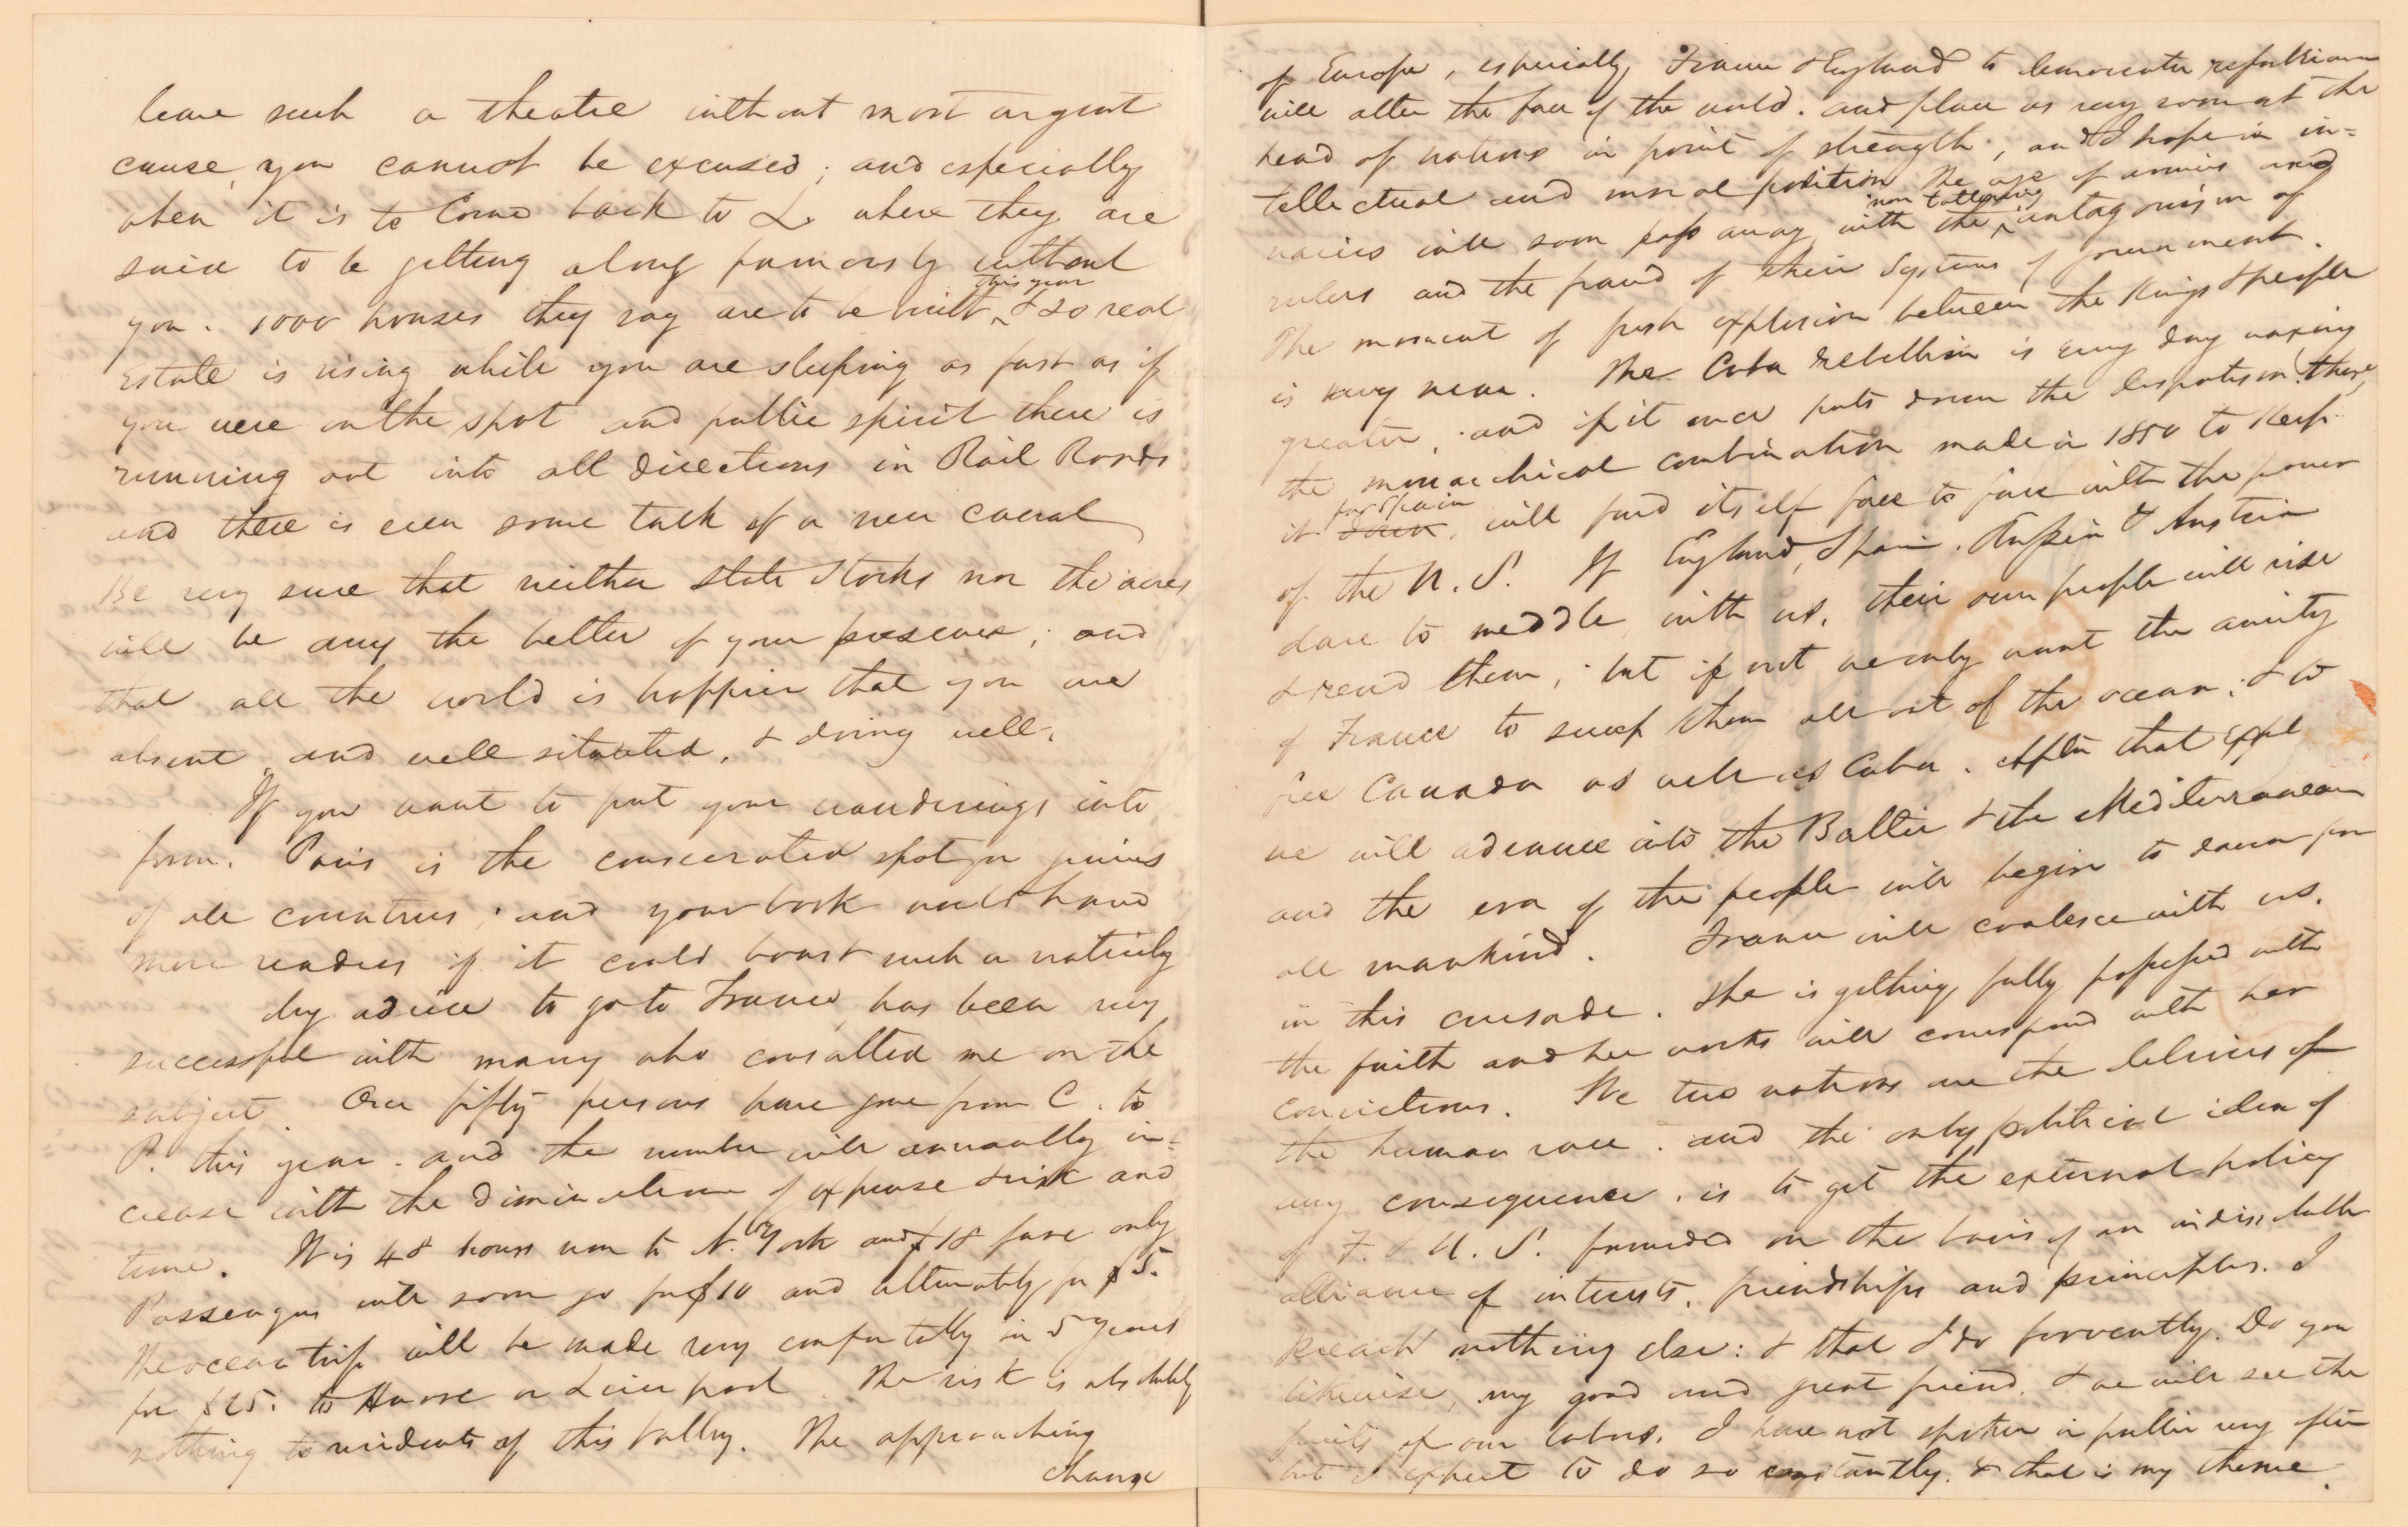 leave such a theatre without most urgent
cause, you cannot be excused; and especially
when it is to Come back to L. where they are
said to be getting along famously without
you. 1000 houses they say are to be built this year & so real
Estate is rising while you are sleeping as fast as if
you were on the spot and public spirit there is
running out into all directions in Rail Roads
and there is even some talk of a new canal
Be very sure that neither State Stocks nor the acres
will be any the better of your presence; and
that all the world is happier that you are
absent, and well situated, & doing well.
If you want to put your wanderings into
form. Paris is the consecrated spot for genius
of all countries; and your book would have
more readers if it could boast such a nativity
My advice to go to France, has been very
successful with many who consulted me on the
subject. Over fifty persons have gone from C. to
P. this year. and the number will annually in=
crease with the diminution of expense & risk and
time. It is 48 hours now to N. York and $18 fare only
Passengers will soon go for $10 and ultimately for $5.
The ocean trip will be made very comfortably in 5 years
for $25. to Havre or Liverpool. The risk is absolutely
nothing to residents of this Valley. The approaching
change
of Europe, especially France & England to democratic republicanism
will alter the face of the world. and place us very soon at the
head of nations in point of strength; and I hope in in=
tellectual and moral position. The use of armies and
navies will soon pass away, with the antagonism of
rulers and the fraud of their Systems of government.
The moment of fresh explosion between the Kings & people
is very near. The Cuba rebellion is every day waxing
greater, and if it once puts down the despotism there,
the monarchical combination made in 1850 to Keep
it for Spain, will find itself face to face with the power
of the U. S. If England, Spain, Russia & Austria
dare to meddle with us, their own people will rise
& rend them; but if not we only want the amity
of France to sweep them all out of the ocean; & to
free Canada as well as Cuba. After that expl
we will advance into the Baltic & the Mediterranean
and the era of the people will begin to dawn for
all mankind. France will coalesce with us.
in this crusade. She is getting fully possessed with
the faith and her works will correspond with her
convictions. The two nations are the deliverers of
the human race. and the only political idea of
any consequence, is to get the external policy
of F. & U. S. founded on the basis of an indissoluble
alliance of interests, friendships and principles. I
preach nothing else: & that I do fervently. Do you
likewise, my good and great friend, & we will see the
fruits of our labors. I have not spoken in public very often
but I expect to do so constantly. & that is my theme.